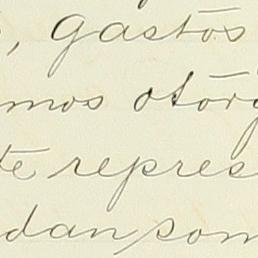 , gastos
mos otorg
te repres
dan som